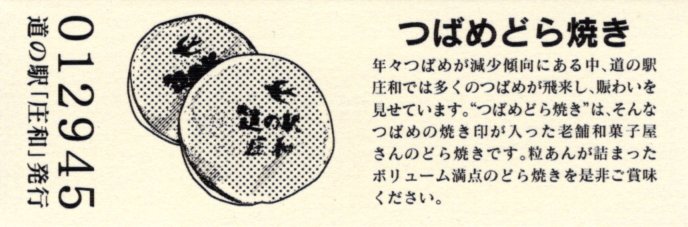 012945
道の駅「庄和」発行
道の駅
庄和
つばめどら焼き
年々つばめが減少傾向にある中、道の駅
庄和では多くのつばめが飛来し、賑わいを
見せています。“つばめどら焼き”は、そんな
つばめの焼き印が入った老舗和菓子屋
さんのどら焼きです。粒あんが詰まった
ボリューム満点のどら焼きを是非ご賞味
ください。